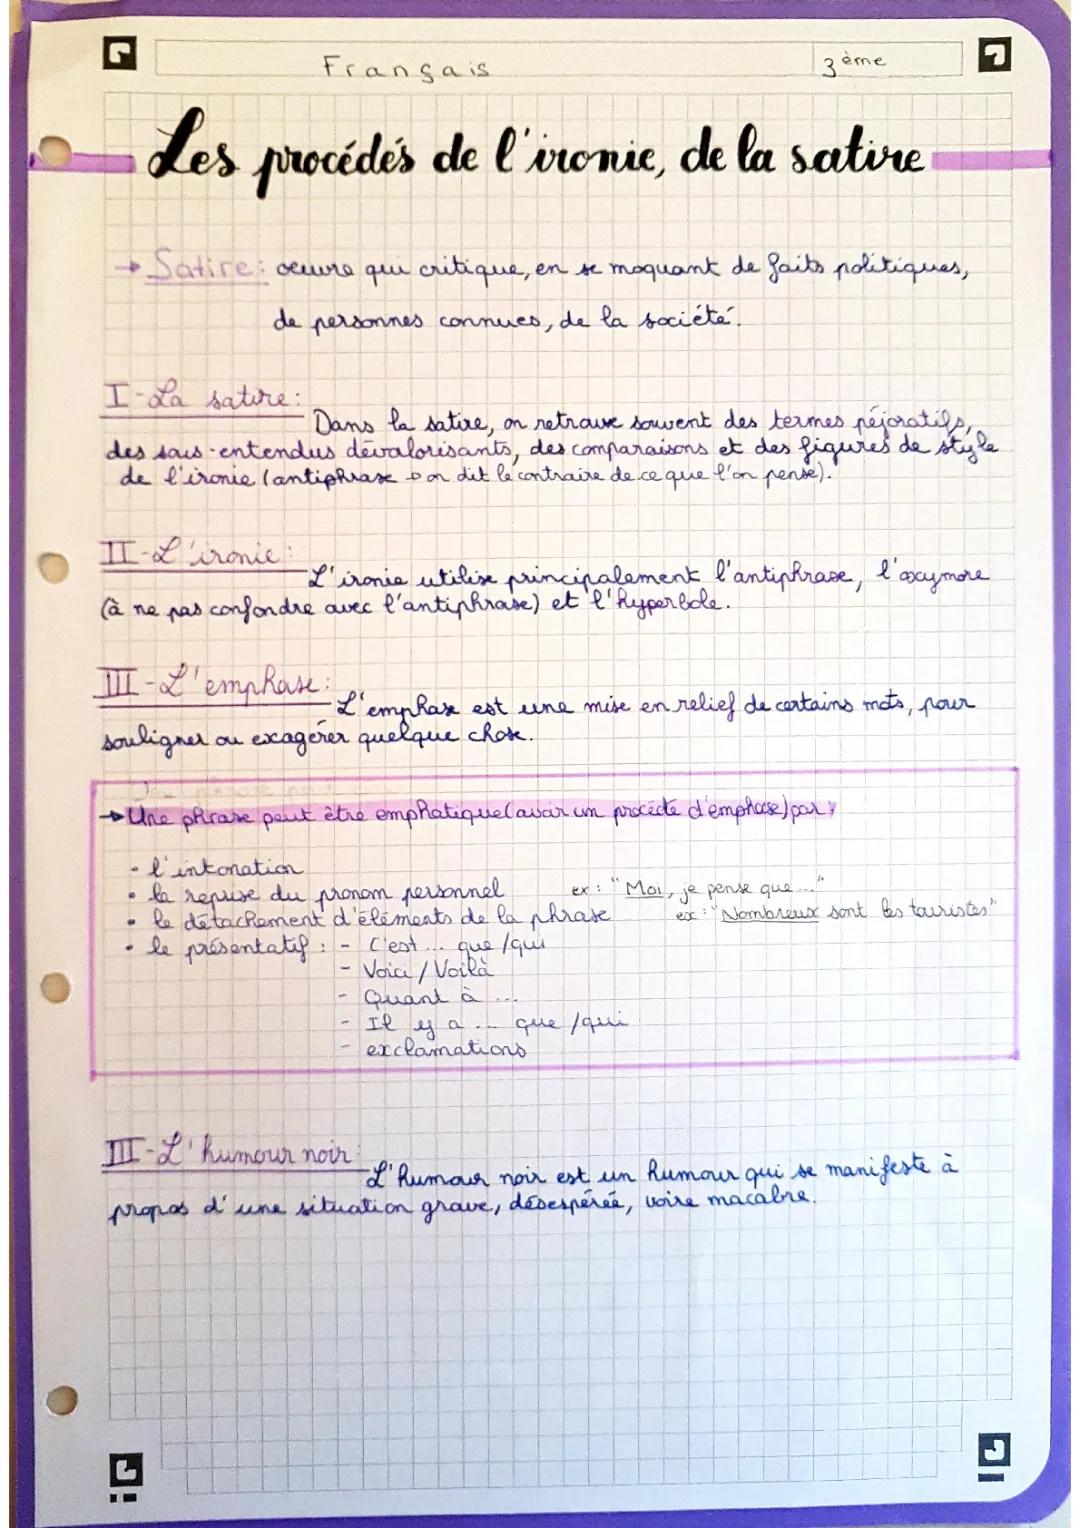 Français
3ème
Les procédés de l'ironie, de la satire
→ Satire : oeuvre qui critique, en se moquant de faits politiques,
de personnes connues, de la société.
I-La satire :
Dans la satire, on retrouve souvent des termes péjoratifs,
des sous-entendus dévalorisants, des comparaisons et des figures de style
de l'ironie (antiphrase → on dit le contraire de ce que l'on pense).
II-L'ironie :
L'ironie utilise principalement l'antiphrase, l'oxymore
(à ne pas confondre avec l'antiphrase) et l'hyperbole.
III-L'emphase :
L'emphase est une mise en relief de certains mots, pour
souligner ou exagérer quelque chose.
→ Une phrase peut être emphatique (avoir un procédé d'emphase) par :
• l'intonation
• la reprise du pronom personnel ex : "Moi, je pense que..."
• le détachement d'éléments de la phrase ex : "Nombreux sont les touristes"
• le présentatif : - C'est ... que /qui
- Voici / Voilà
- Quant à ...
- Il y a ... que /qui
- exclamations
III-L'humour noir :
L'humour noir est un humour qui se manifeste à
propos d'une situation grave, désespérée, voire macabre.